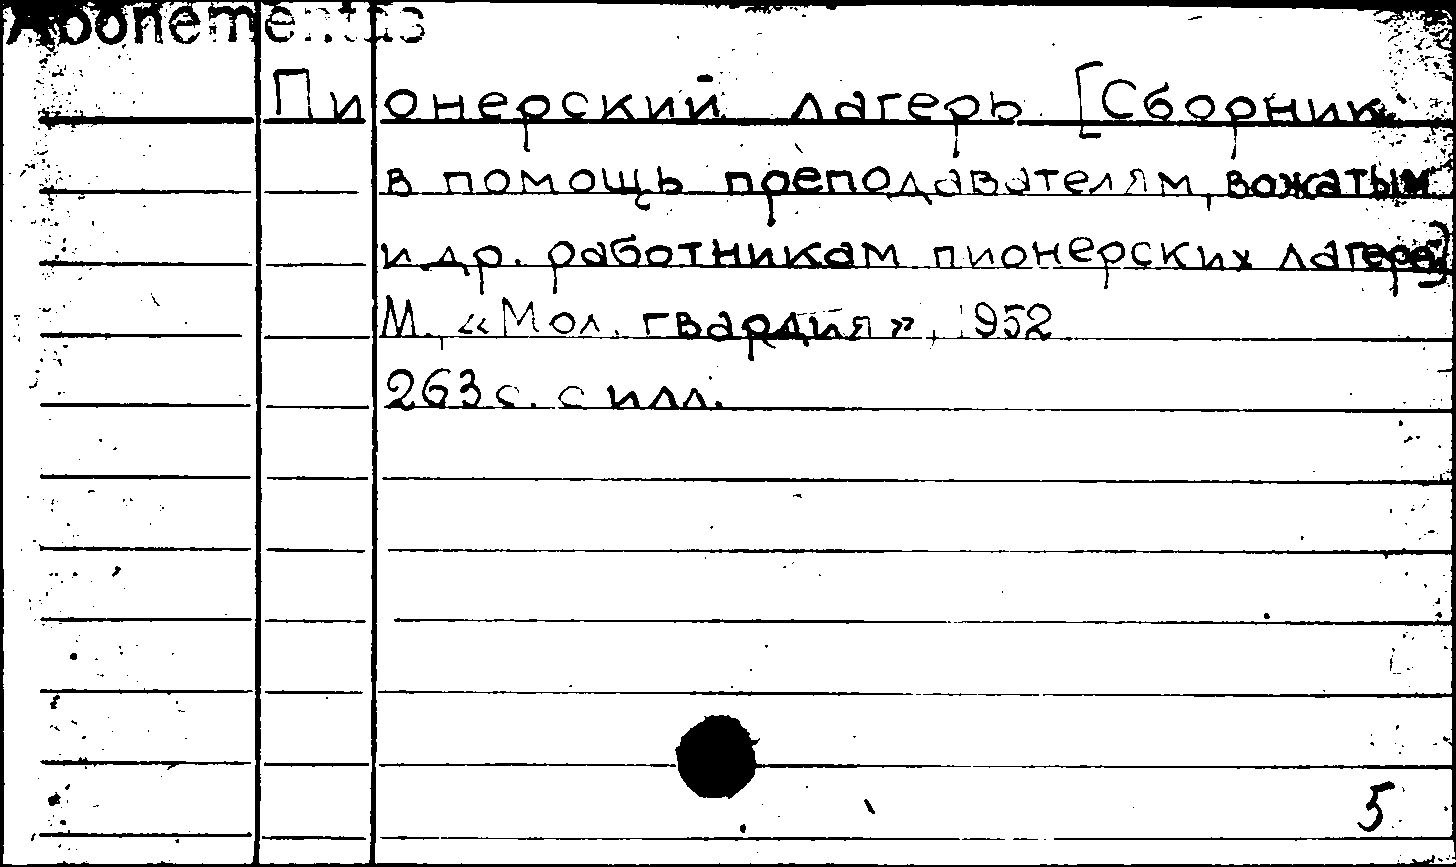 Abonementas
Пионерский лагерь [Сборник
в помощь преподавателям, вожатым
и др. работникам пионерских лагерей]
М., «Мол. гвардия», 1952
263 с. с илл.
5